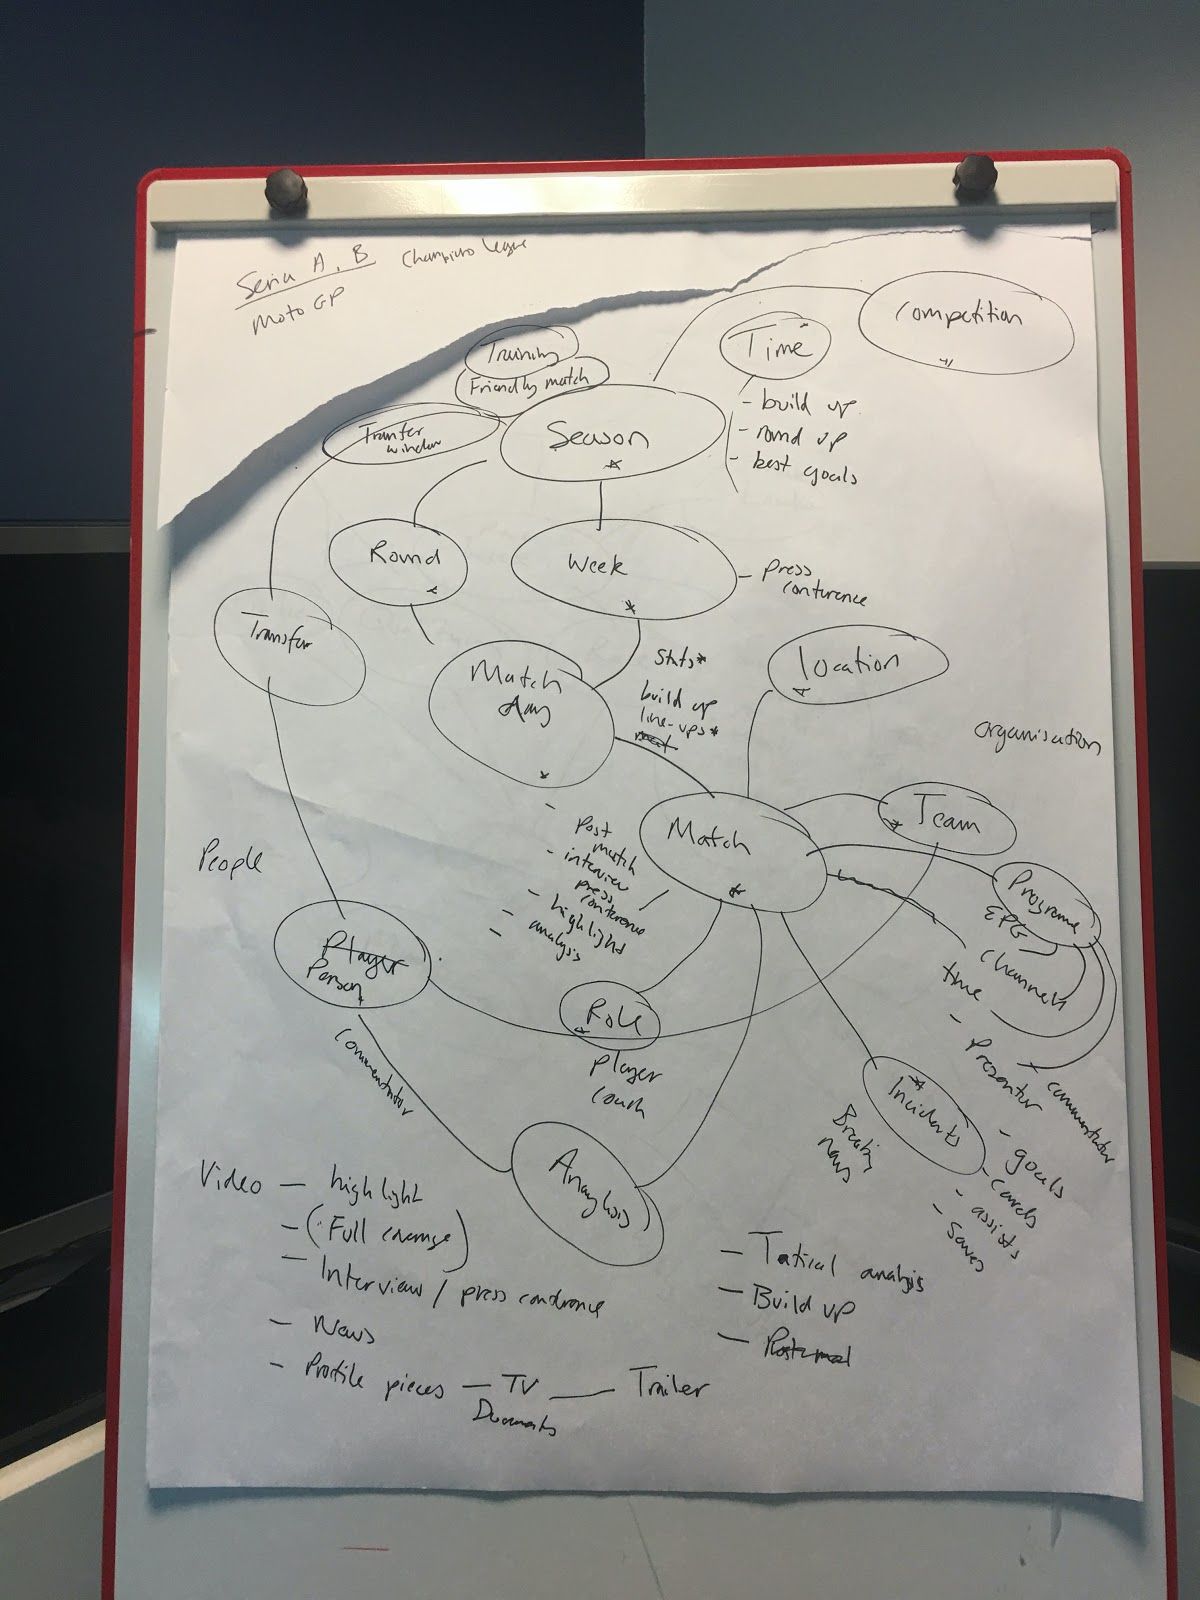 Seria A, B Champions League
Moto GP
Competition
Time
Training
Friendly match
- build up
- round up
- best goals
Transfer
window
Season
Round
Week
- Press
conference
Transfer
Match
day
Stats*
build up
line-ups*
location
organisation
Team
Match
- Post
match
- interview
press
conference
- highlight
- analysis
People
Programme
EPG
channels
time
- Presenter
commentator
Player
Person
Role
Player
coach
commentator
Incidents
Breaking
news
- goals
- cards
- assists
- Saves
Anaylsis
Video - highlight
- (Full coverage)
- Interviews / press conference
- News
- Profile pieces - TV - Trailer
- Tatical analysis
- Build up